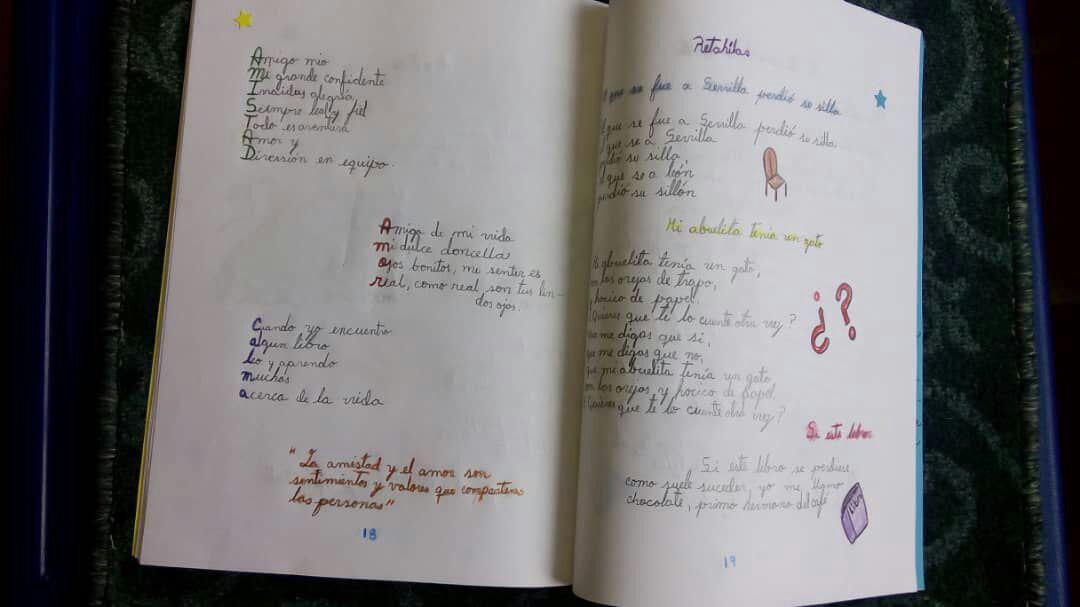 Amigo mio
Mi grande confidente
Incidas alegria
Siempre leal y fiel
Todo es aventura
Amor y
Diversión en equipo.
Amiga de mi vida
mi dulce doncella
ojos bonitos, mi sentir es
real, como real son tus lin-
dos ojos.
Cuando yo encuentro
algun libro
leo y aprendo
muchas
acerca de la vida
"La amistad y el amor son
sentimientos y valores que comparten
las personas"
18
Retahilas
que se fue a Sevilla perdió su silla
que se fue a Sevilla perdió su silla
que se a Sevilla
su silla,
que se a león
perdió su sillón
Mi abuelita tenía un gato
Mi abuelita tenía un gato,
con las orejas de trapo,
y hocico de papel.
¿Quieres que te lo cuente otra vez?
que me digas que si,
que me digas que no,
que mi abuelita tenía un gato
con las orejas y hocico de papel.
¿Quieres que te lo cuente otra vez?
¿?
Si este libro
Si este libro se perdiese
como suele suceder, yo me llamo
chocolate, primo hermano del café
19